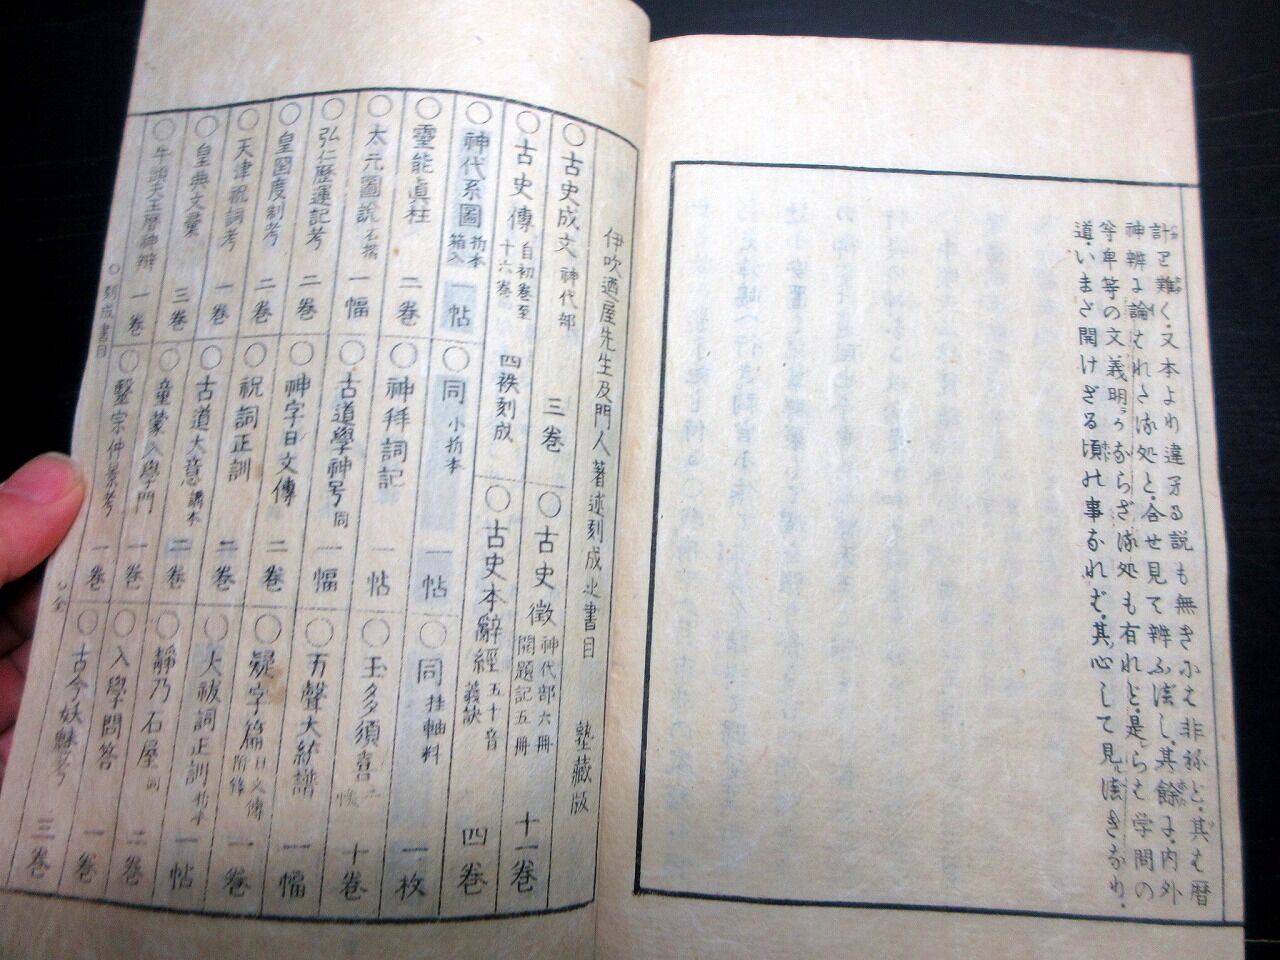 計り難く、又本より違よる説も無きにも非ねど、其は暦
神辨に論はれたる処と、合せ見て辨ふ法し、其餘に、内外
等串等の文義明かならざる処も有れど、是らは学問の
道いまだ開けざる頃の事なれば、其心して見法きなり、
伊吹廼屋先生及門人著述刻成之書目 塾藏版
○古史成文 神代部 三巻
○古史徴 神代部六冊 開題記五冊 十一巻
○古史傳 自初巻至十六巻 四秩刻成
○古史本辭經 五十音義訣 四巻
○神代系圖 折本箱入 一帖
○同 小折本 一帖
○同 挂軸料 一枚
○靈能真柱 二巻
○神拜詞記 一帖
○玉多襷 十巻
○太元圖説 石摺 一幅
○古道學神号 同 一幅
○五聲大統譜 一幅
○弘仁歴運記考 二巻
○神字日文傳 二巻
○疑字篇 日文傳附録 一巻
○皇國度制考 二巻
○祝詞正訓 二巻
○大祓詞正訓 折本 一帖
○天津祝詞考 一巻
○古道大意 講本 二巻
○靜乃石屋 同 二巻
○皇典文彙 三巻
○童蒙入學門 一巻
○入學問答 一巻
○牛頭天王暦神辨 一巻
○醫宗仲景考 一巻
○古今妖魅考 三巻
○刻成書目
○全